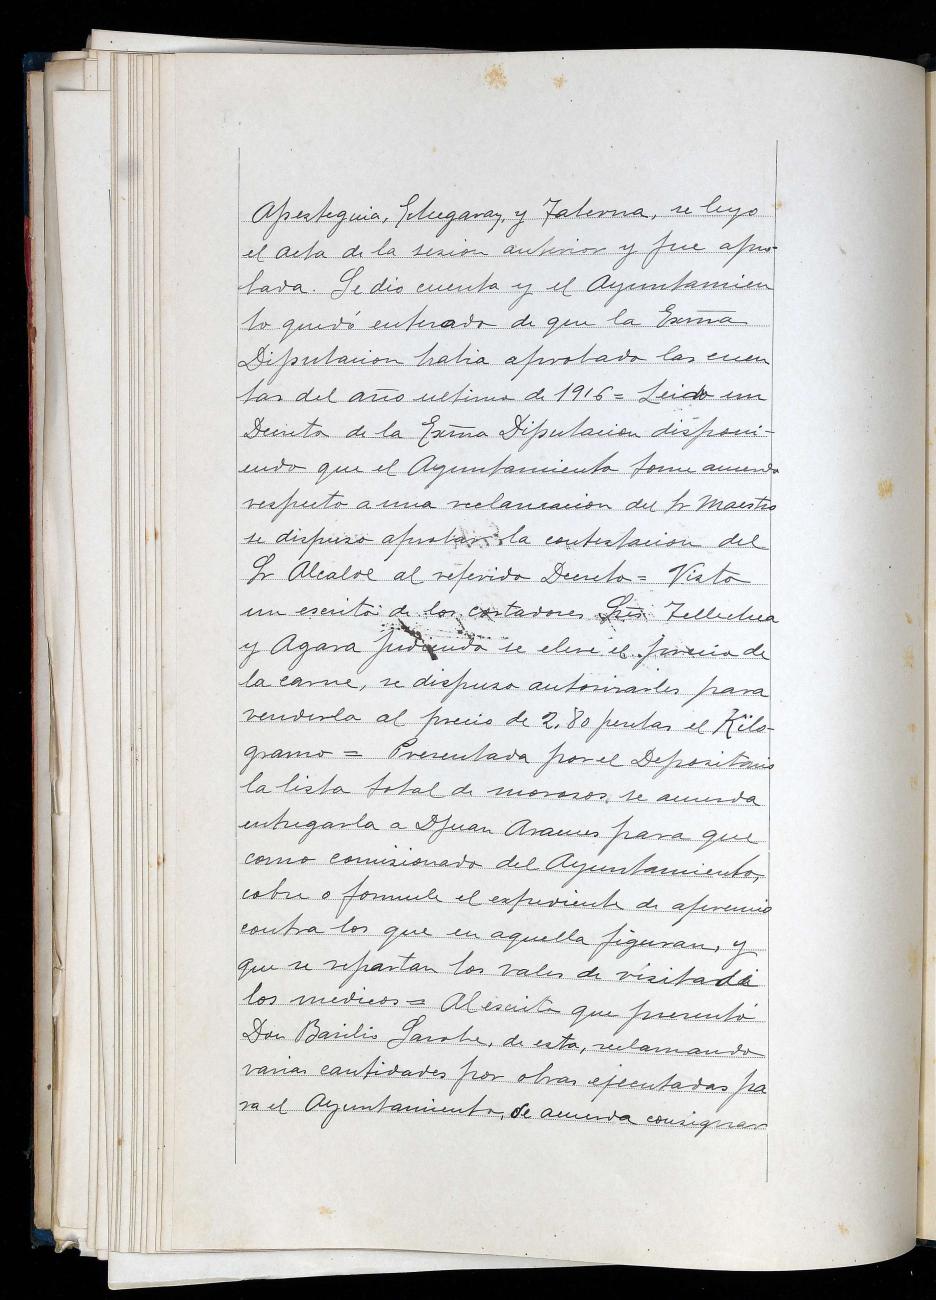 Apesteguia, Echegaray, y Taberna, se leyo
el acta de la sesion anterior y fue apro-
bada. Se dio cuenta y el Ayuntamien
to quedó enterado de que la Exma
Diputacion habia aprobado las cuen
tas del año ultimo de 1916 = Leido un
Decreto de la Exma Diputacion disponi-
endo que el Ayuntamiento tome acuerdo
respecto a una reclamacion del Sr Maestro
se dispuso aprobar la contestacion del
Sr Alcalde al referido Decreto = Visto
un escrito de los cortadores Sres Tellechea
y Agara pidiendo se eleve el precio de
la carne, se dispuso autorizarles para
venderla al precio de 2,80 pesetas el Kilo-
gramo = Presentada por el Depositario
la lista total de morosos, se acuerda
entregarla a DJuan para que
como comisionado del Ayuntamiento,
cobre o formule el expediente de apremio
contra los que en aquella figuran, y
que se repartan los vales de visita de
los medicos = Al escrito que presentó
Don Basilio Sarobe, de esta, reclamando
varias cantidades por obras ejecutadas pa
ra el Ayuntamiento, se acuerda consignar